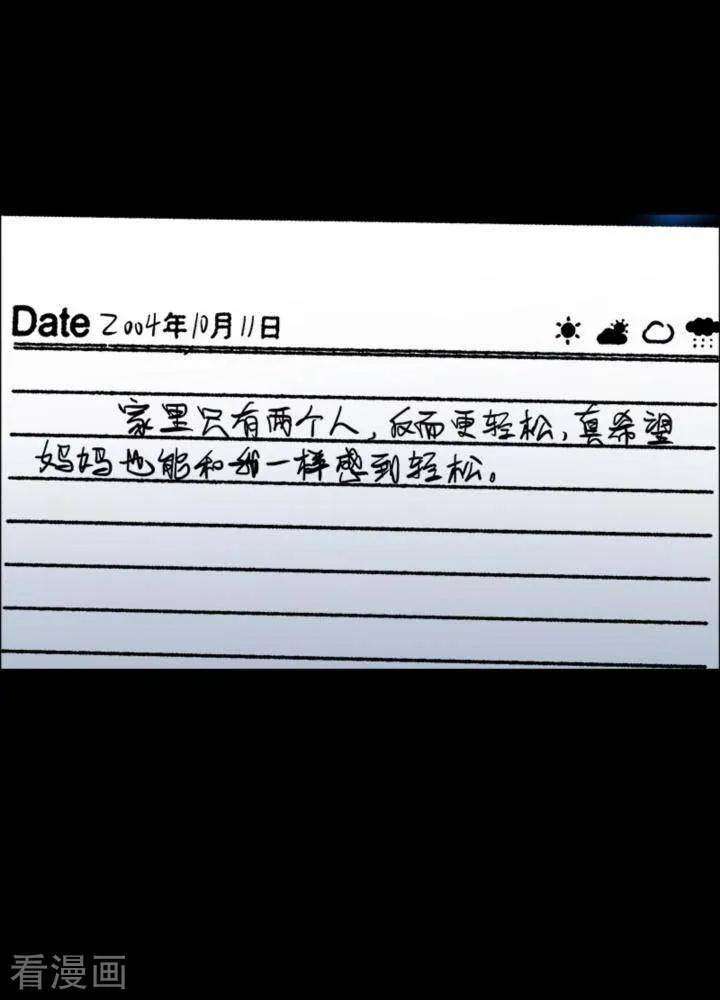 Date 2004年10月11日
家里只有两个人，反而更轻松，真希望
妈妈也能和我一样感到轻松。
看漫画